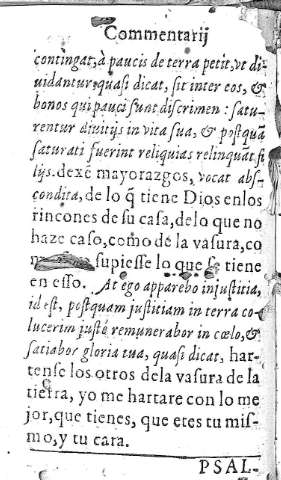 Commentarij
contingat, à paucis de terra petit, vt di-
uidantur, quasi dicat, sit inter eos, &
bonos qui pauci sunt discrimen: satu-
rentur diuitijs in vita sua, & postquã
saturati fuerint reliquias relinquãt fi
lijs. dexẽ mayorazgos, vocat abs-
condita, de lo q̃ tiene Dios enlos
rincones de su casa, delo que no
haze caso, como de la vasura, co
supiesse lo que se tiene
en esso. At ego apparebo iniustitia,
id est, postquam justiciam in terra co
lucerim justè remunerabor in cœlo, &
satiabor gloria tua, quasi dicat, har-
tense los otros dela vasura de la
tierra, yo me hartare con lo me
jor, que tienes, que etes tu mis-
mo, y tu cara.
PSAL-